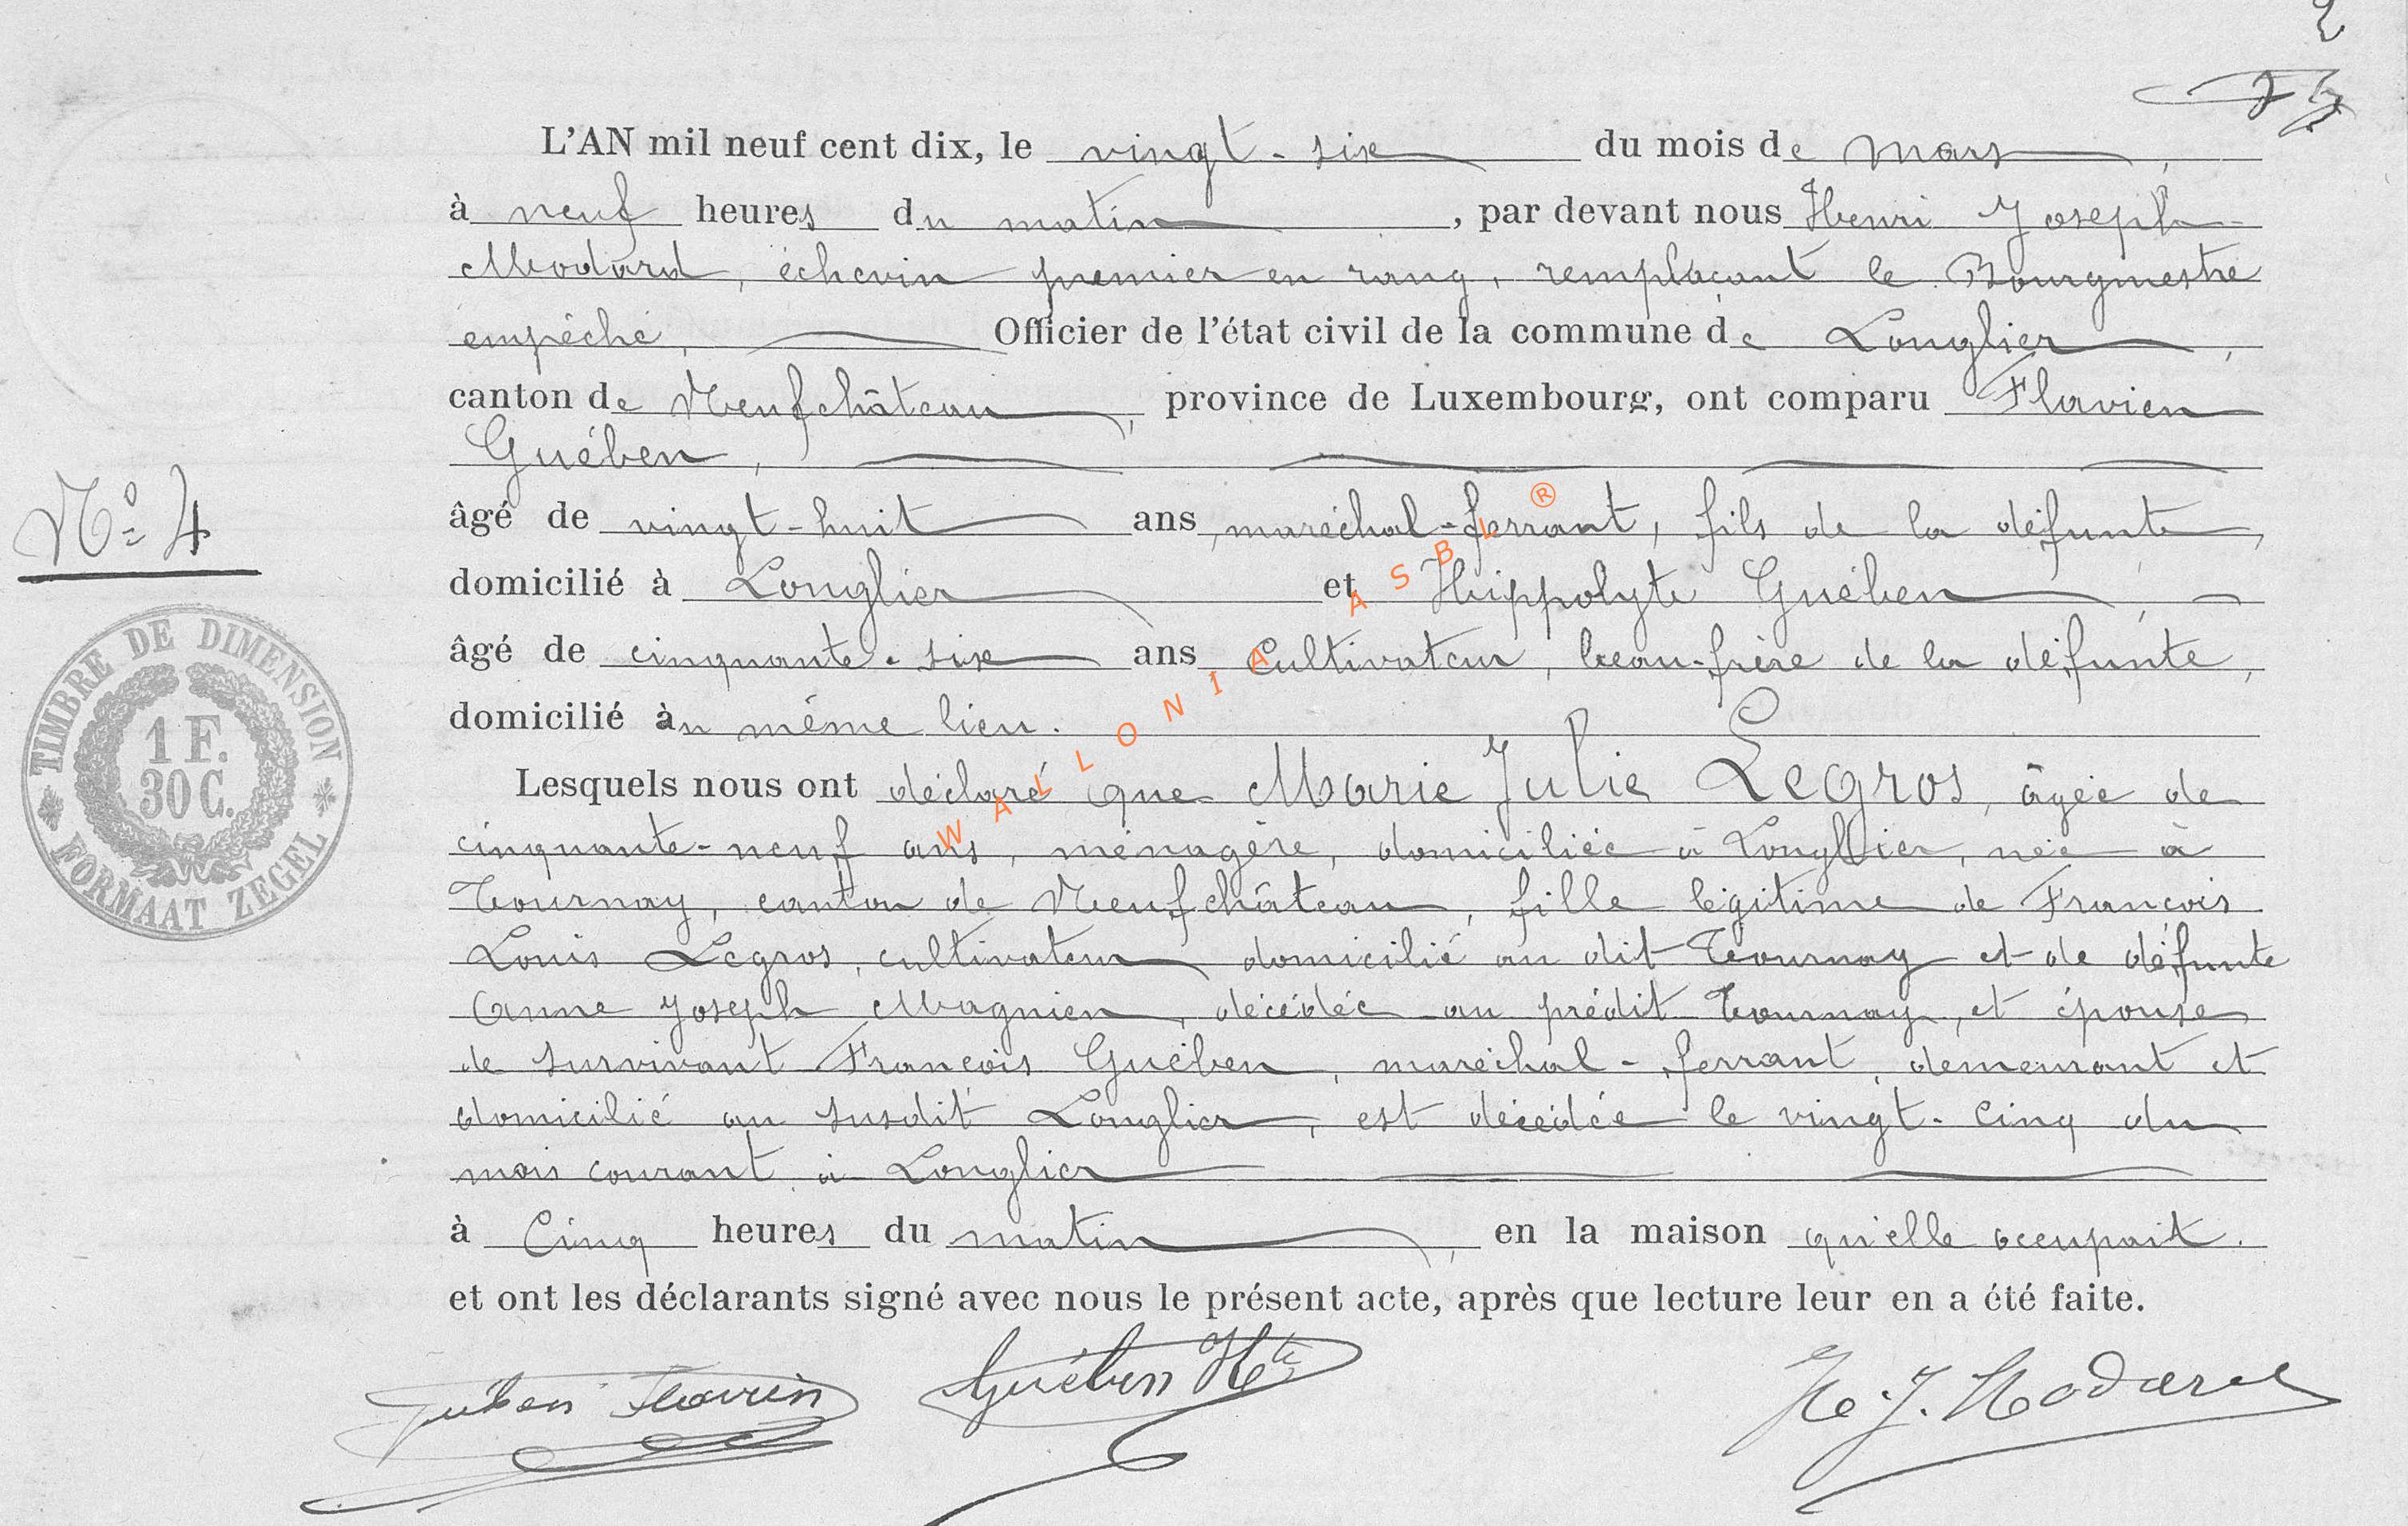 2
L'AN mil neuf cent dix, le vingt-six du mois de mars,
à neuf heures du matin, par devant nous Henri Joseph
Modard, échevin premier en rang, remplaçant le Bourgmestre
empêché, Officier de l'état civil de la commune de Longlier,
canton de Neufchâteau, province de Luxembourg, ont comparu Flavien
Guében,
âgé de vingt-huit ans, maréchal-ferrant, fils de la défunte,
domicilié à Longlier et Hippolyte Guében,
âgé de cinquante-six ans Cultivateur, beau-frère de la défunte,
domicilié au même lieu.
Lesquels nous ont déclaré que Marie Julie Legros, âgée de
cinquante-neuf ans, ménagère, domiciliée à Longlier, née à
Tournay, canton de Neufchâteau, fille légitime de François
Louis Legros, cultivateur domicilié au dit Tournay et de défunte
Anne Joseph Magnien, décédée au prédit Tournay, et épouse
de survivant François Guében, maréchal-ferrant, demeurant et
domicilié au susdit Longlier, est décédée le vingt-cinq du
mois courant à Longlier
à Cinq heures du matin, en la maison qu'elle occupait.
et ont les déclarants signé avec nous le présent acte, après que lecture leur en a été faite.
Guében Flavien Guében Hte H. J. Modard
N° 4
TIMBRE DE DIMENSION
1 F.
30 C.
FORMAAT ZEGEL
WALLONIA ASBL ®